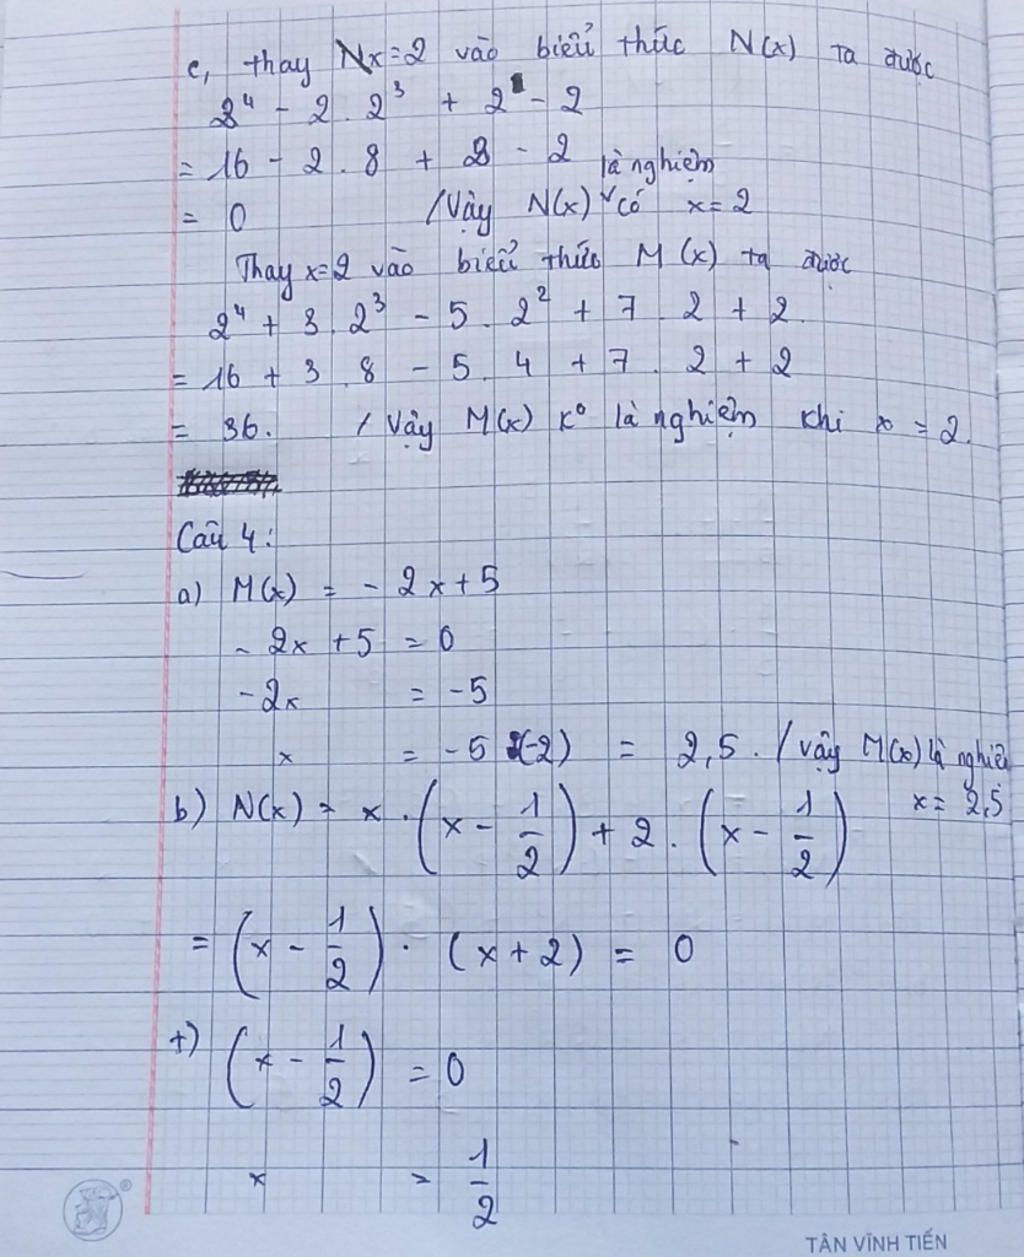 c, thay Nx=2 vào biểu thức N(x) ta được
2⁴ - 2 . 2³ + 2 - 2
= 16 - 2 . 8 + 2 - 2
là nghiệm
= 0 /Vậy N(x) ˅ có x = 2
Thay x=2 vào biểu thức M(x) ta được
2⁴ + 3 . 2³ - 5 . 2² + 7 . 2 + 2
= 16 + 3 . 8 - 5 . 4 + 7 . 2 + 2
= 36. / Vậy M(x) k⁰ là nghiệm khi x = 2.
Câu 4:
a) M(x) = - 2x + 5
- 2x + 5 = 0
- 2x = -5
x = -5 :(-2) = 2,5. / vậy M(x) là nghiệ
x = 2,5
b) N(x) = x . (x - 1/2) + 2 . (x - 1/2)
= (x - 1/2) . (x + 2) = 0
+) (x - 1/2) = 0
x = 1/2
TÂN VĨNH TIẾN